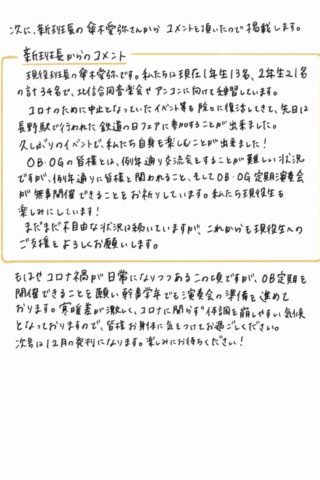 次に、新班長の傘木愛弥さんから コメントを頂いたので掲載します。
新班長からのコメント
現役班長の傘木愛弥です。私たちは現在1年生13名、2年生21名
の計34名で、北信合同音楽会やアンコンに向けて練習しています。
コロナのために中止となっていたイベント等も徐々に復活してきて、先日は
長野駅で行われた鉄道の日フェアに参加することが出来ました。
久しぶりのイベントで、私たち自身も楽しむことが出来ました!
OB・OGの皆様とは、例年通り交流会をすることが難しい状況
ですが、例年通りに皆様と関われること、そしてOB・OG定期演奏会
が無事開催できることをお祈りしています。私たち現役生も
楽しみにしています!
まだまだ不自由な状況は続いていますが、これからも現役生への
ご支援をよろしくお願いします。
もはやコロナ禍が日常になりつつあるこの頃ですが、OB定期を
開催できることを願い幹事学年でも演奏会の準備を進めて
おります。寒暖差が激しく、コロナに関らず体調を崩しやすい気候
となっておりますので、皆様お身体に気をつけてお過ごしください。
次号は12月の発刊になります。楽しみにお待ちください!